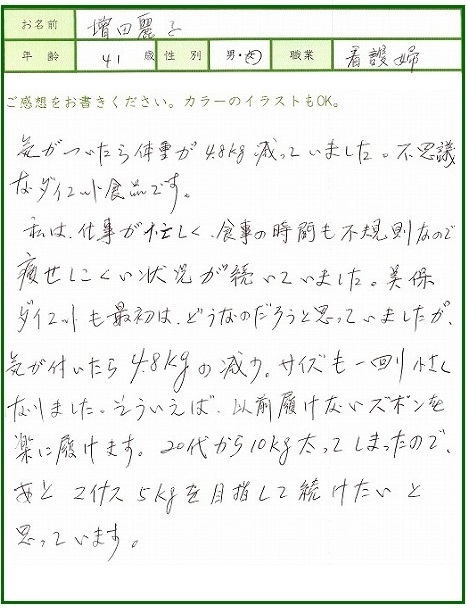 お名前 増田麗子
年齢 41 歳 性別 男・女 職業 看護婦
ご感想をお書きください。カラーのイラストもOK。
気がついたら体重が4.8kg減っていました。不思議
なダイエット食品です。
私は、仕事が忙しく、食事の時間も不規則なので
痩せしにくい状況が続いていました。美保
ダイエットも最初は、どうなのだろうと思っていましたが、
気が付いたら4.8kgの減少。サイズも一回り小さく
なりました。そういえば、以前履けないズボンを
楽に履けます。20代から10kg太ってしまったので、
あと マイナス5kgを目指して続けたいと
思っています。